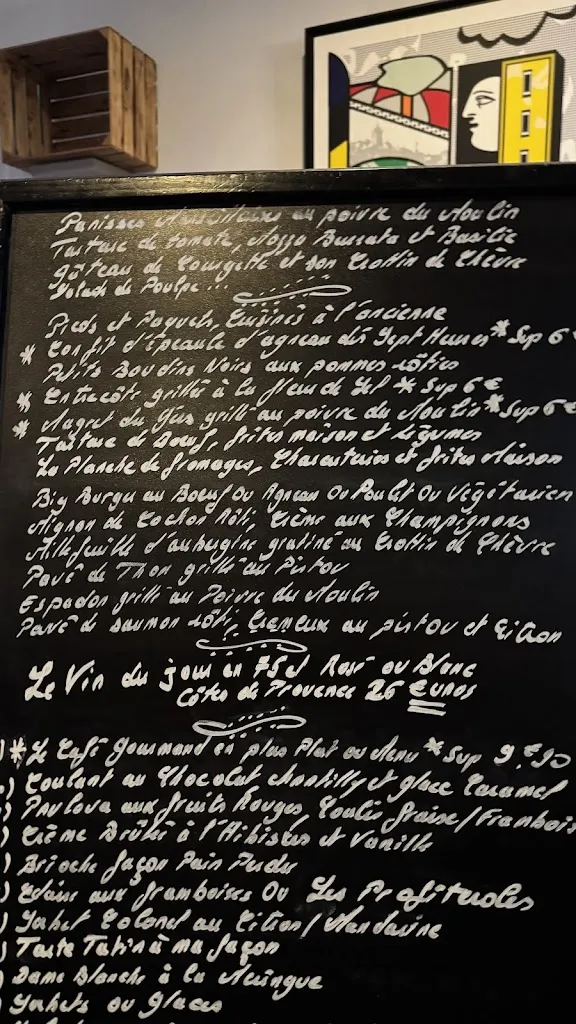 Panisses Marseillaises au poivre du Moulin
Tartare de tomate, Mozza Burrata et Basilic
Gâteau de Courgette et son Crottin de Chèvre
Salade de Poulpe...
Pieds et Paquets, Cuisinés à l'ancienne
* Confit d'épaule d'agneau dès Sept Heures * Sup 6€
Petits Boudins Noirs aux pommes rôties
* Entrecôte grillée à la fleur de Sel * Sup 6€
* Magret du Gers grillé au poivre du Moulin * Sup 6€
Tartare de Bœuf, frites maison et légumes
La Planche de fromages, Charcuteries et frites Maison
Big Burger au Boeuf Ou Agneau Ou Poulet Ou Végétarien
Mignon de Cochon Rôti, Crème aux Champignons
Millefeuille d'aubergine gratiné au Crottin de Chèvre
Pavé de Thon grillé au Pistou
Espadon grillé au Poivre du Moulin
Pavé de saumon rôti, Crémeux au pistou et Citron
Le Vin du jour en 75cl Rosé ou Blanc
Côtes de Provence 26 Euros
) * Le Café Gourmand en plus Plat ou Menu * Sup 9,€90
) Coulant au Chocolat chantilly et glace Caramel
) Pavlova aux fruits Rouges, Coulis fraise/Framboise
) Crème Brûlée à l'Hibiscus et Vanille
) Brioche façon Pain Perdu
) Eclair aux framboises Ou Les Profiteroles
) Sorbet Colonel au Citron/Mandarine
) Tarte Tatin à ma façon
) Dame Blanche à la Meringue
) Sorbets ou Glaces